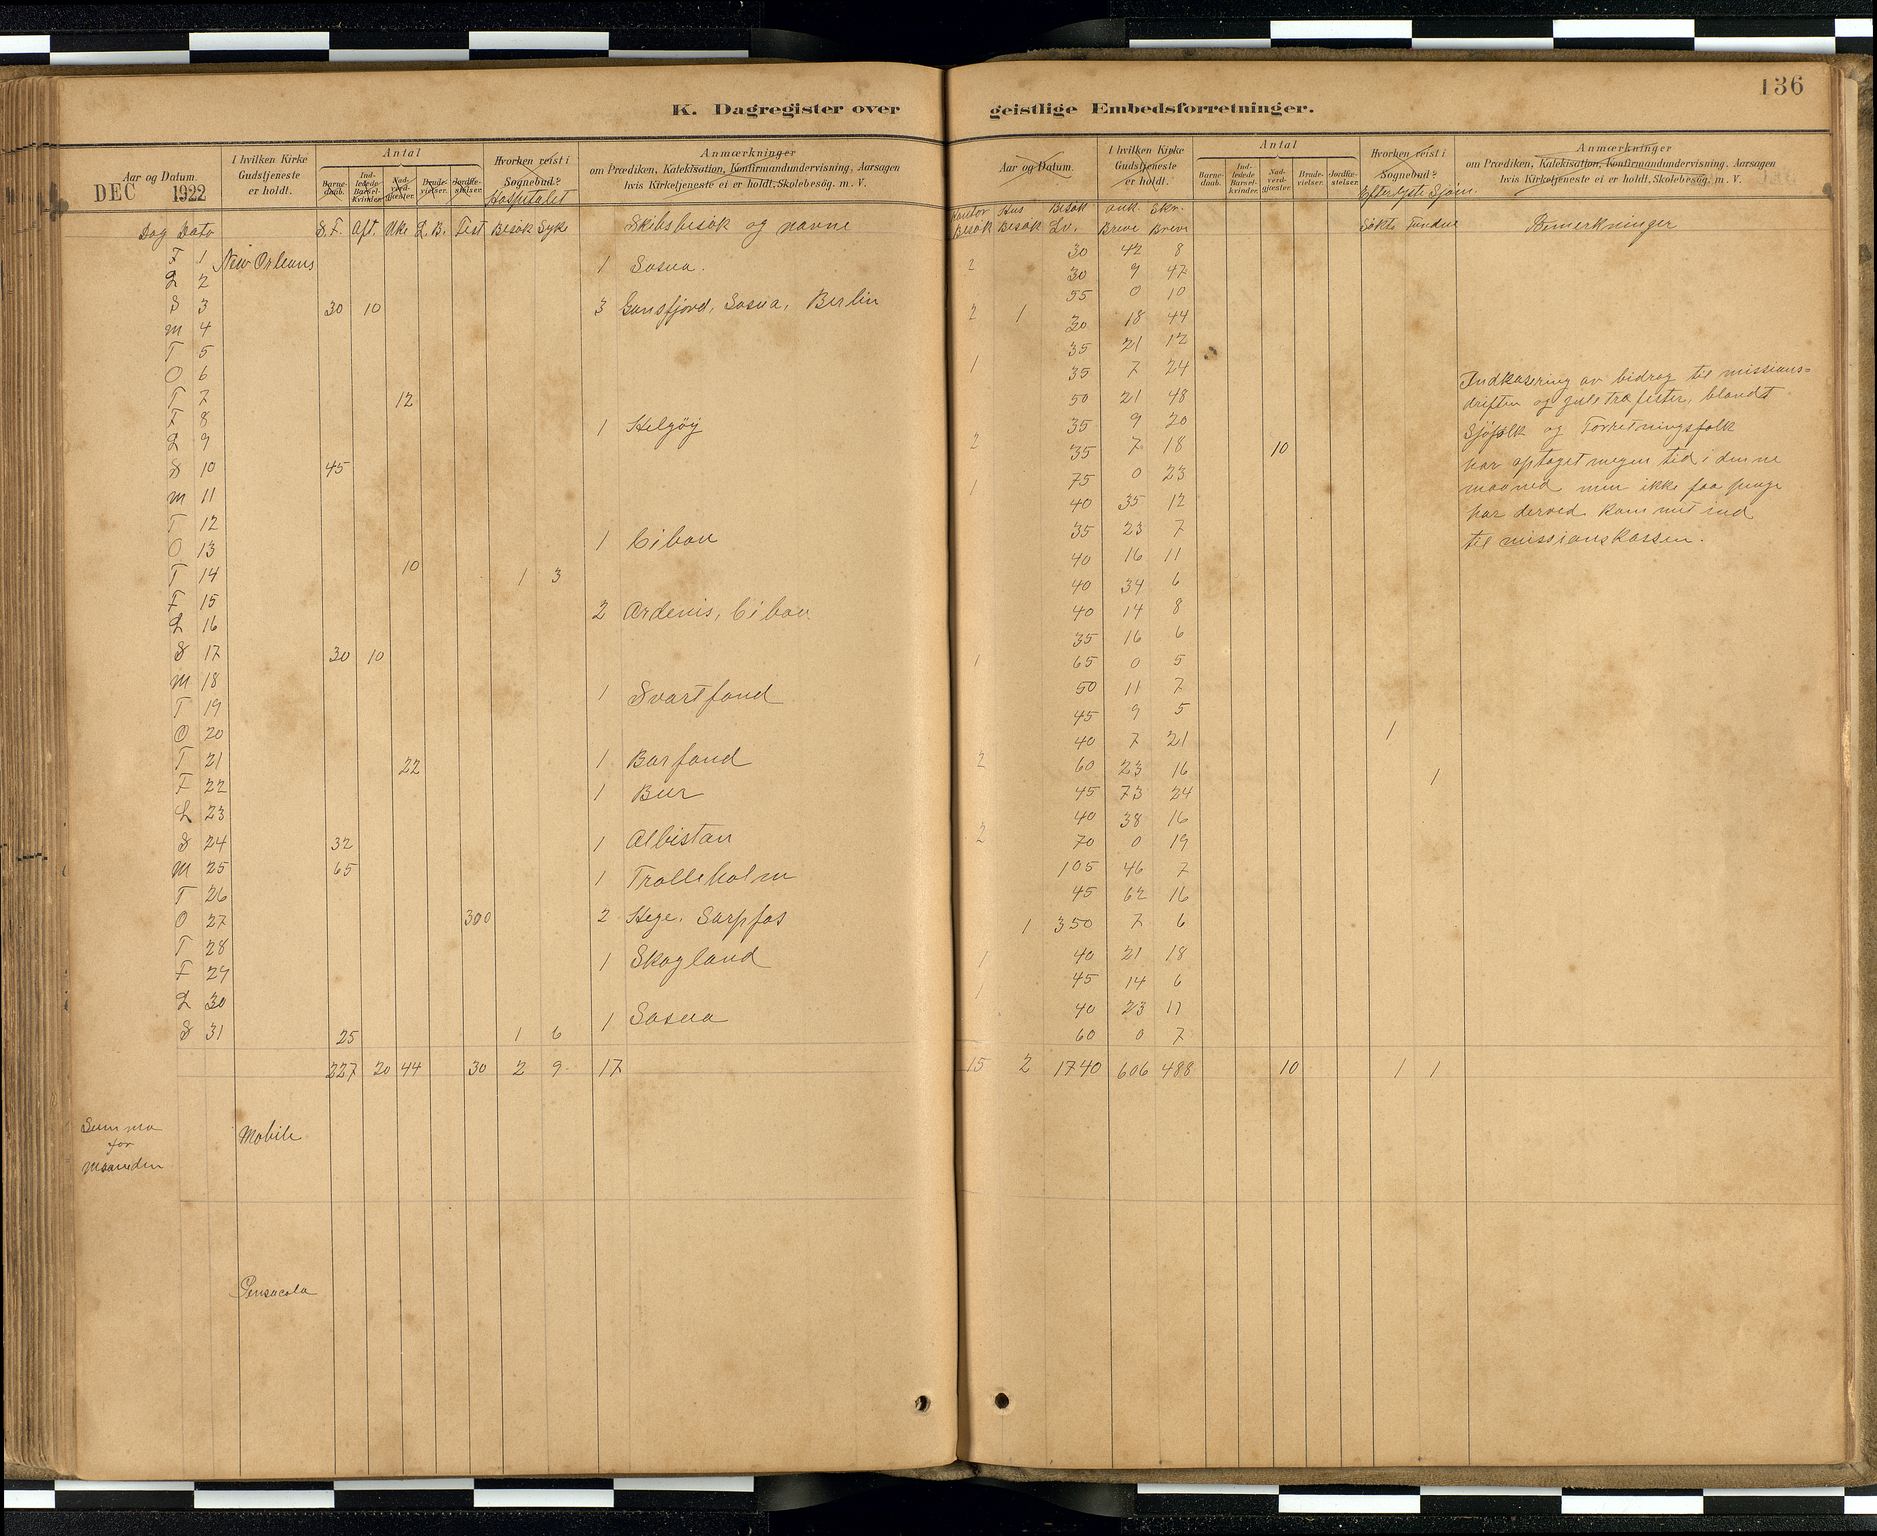 136
K. Dagregister over geistlige Embedsforretninger.
Aar og Datum.
DEC 1922
I hvilken Kirke Gudstjeneste er holdt.
Antal
Barnedaab. Indledede Barselkvinder. Nadverdgjester. Brudevielser. Jordfæstelser.
Hvorhen reist i Sognebud?
Hospitalet
Anmærkninger
om Prædiken, Katekisation, Konfirmandundervisning, Aarsagen
hvis Kirketjeneste ei er holdt, Skolebesøg. m. V.
Dag Dato S. F. Aft. Uke L. B. Fest Besök Syke Skibsbesök og navne
F 1 New Orleans 1 Sosua.
L 2
S 3 30 10 3 Gansfjord, Sosua, Berlin
M 4
T 5
O 6
T 7 12
F 8 1 Helgöy
L 9
S 10 45
M 11
T 12
O 13 1 Cibao
T 14 10 1 3
F 15
L 16 2 Ardenis, Cibao
S 17 30 10
M 18
T 19 1 Svartfond
O 20
T 21 22 1 Barfond
F 22 1 Bur
L 23
S 24 32 1 Albistan
M 25 65 1 Trolleholm
T 26
O 27 300 2 Hege, Sarpfos
T 28
F 29 1 Skogland
L 30
S 31 25 1 6 1 Sosua
227 20 44 30 2 9 17
Summa
for
Maaneden
Mobile
Pensacola
Aar og Datum.
I hvilken Kirke Gudstjeneste er holdt.
Antal
Barnedaab. Indledede Barselkvinder. Nadverdgjester. Brudevielser. Jordfæstelser.
Hvorhen reist i Sognebud?
Anmærkninger
om Prædiken, Katekisation, Konfirmandundervisning, Aarsagen
hvis Kirketjeneste ei er holdt, Skolebesøg. m. V.
Kontor Hus Besök ank. Skr. Efterlyste Sjöm.
Besök Besök Lv. Breve Breve Sökte Fundne Bemerkninger
30 42 8
2 30 9 47
55 0 10
2 1 30 18 44
35 21 12
1 35 7 24
50 21 48
35 9 20
2 35 7 18 10
75 0 23
1 40 35 12
35 23 7
40 16 11
40 34 6
40 14 8
35 16 6
1 65 0 5
50 11 7
45 9 5
40 7 21 1
2 60 23 16
45 73 24 1
40 38 16
2 70 0 19
105 46 7
45 62 16
1 350 7 6
1 40 21 18
45 14 6
1 40 23 11
60 0 7
15 2 1740 606 488 10 1 1
Indkasering av bidrag til missions=
driften og juletræfester, blandt
Sjöfolk og Forretningsfolk
har optaget megen tid i denne
maaned men ikke faa penge
har derved kommet ind
til missionskassen.